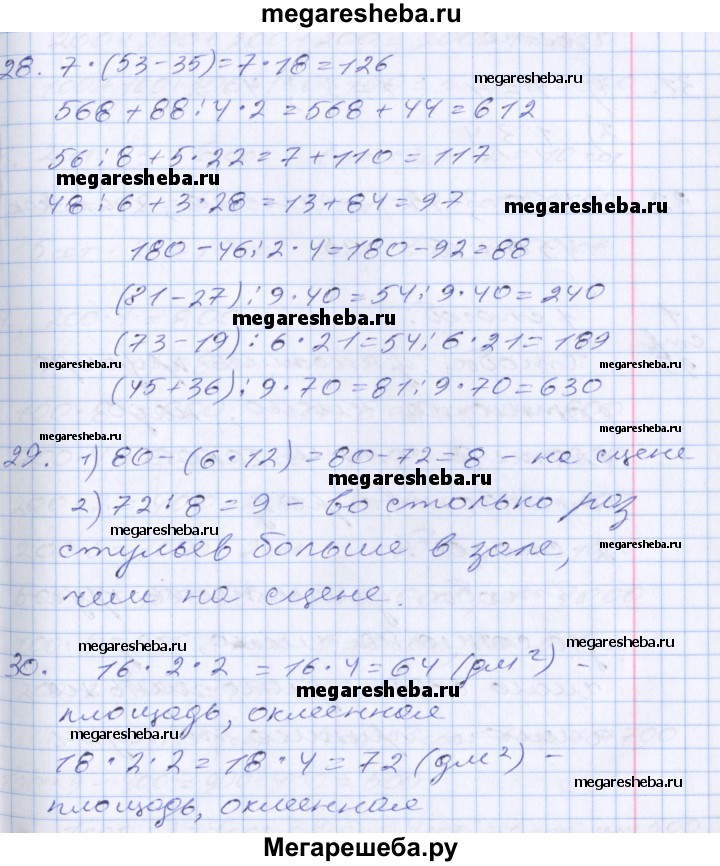 megaresheba.ru
28. 7·(53-35)=7·18=126
megaresheba.ru
568+88:4·2=568+44=612
56:8+5·22=7+110=117
megaresheba.ru
48:6+3·28=13+84=97
megaresheba.ru
180-46:2·4=180-92=88
(81-27):9·40=54:9·40=240
megaresheba.ru
(73-19):6·21=54:6·21=189
megaresheba.ru
megaresheba.ru
(45+36):9·70=81:9·70=630
megaresheba.ru
29. 1) 80-(6·12)=80-72=8 - на сцене
megaresheba.ru
2) 72:8=9 - во столько раз
megaresheba.ru
стульев больше в зале,
чем на сцене.
megaresheba.ru
megaresheba.ru
30. 16·2·2=16·4=64 (дм²) -
megaresheba.ru
площадь, оклеенная
megaresheba.ru
18·2·2=18·4=72 (дм²) -
megaresheba.ru
площадь, оклеенная
Мегарешеба.ру